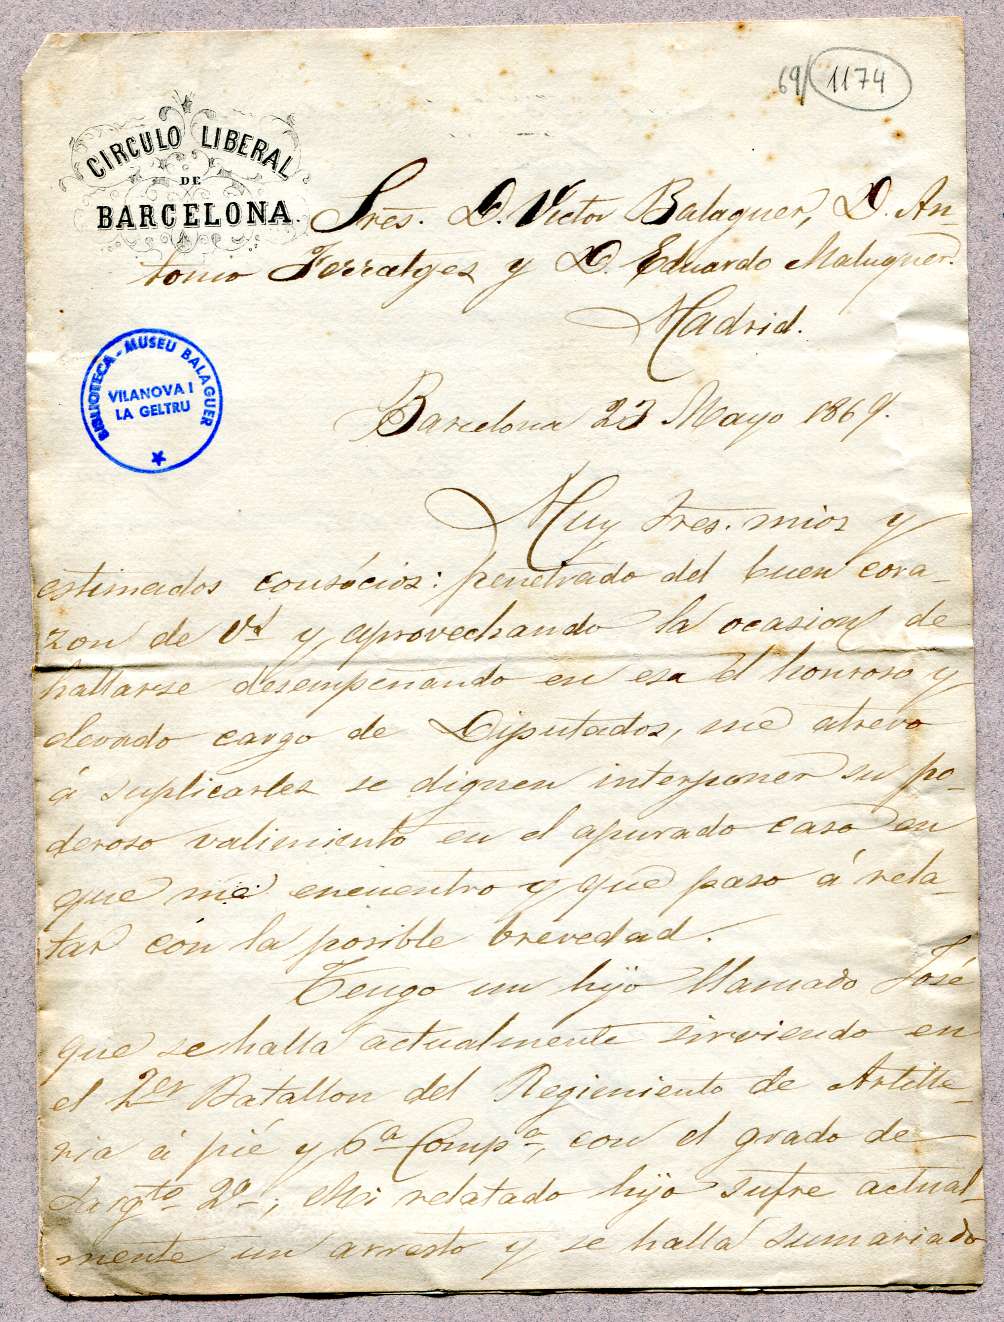 69/1174
CIRCULO LIBERAL
DE
BARCELONA.
Sres. D. Victor Balaguer, D. An-
tonio Ferratges y D. Eduardo Maluquer.
Madrid.
BIBLIOTECA - MUSEU BALAGUER
VILANOVA I
LA GELTRU
Barcelona 23 Mayo 1869.
Muy Sres. mios y
estimados consócios: penetrado del buen cora-
zon de Vd y aprovechando la ocasion de
hallarse desempeñando en esa el honroso y
elevado cargo de Diputados, me atrevo
á suplicarles se dignen interponer su po-
deroso valimiento en el apurado caso en
que me encuentro y que paso á rela-
tar con la posible brevedad.
Tengo un hijo llamado José
que se halla actualmente sirviendo en
el 2er Batallon del Regimiento de Artille-
ria á pié y 6a Compa, con el grado de
Sargto 2o; Mi relatado hijo sufre actual-
mente un arresto y se halla sumariado